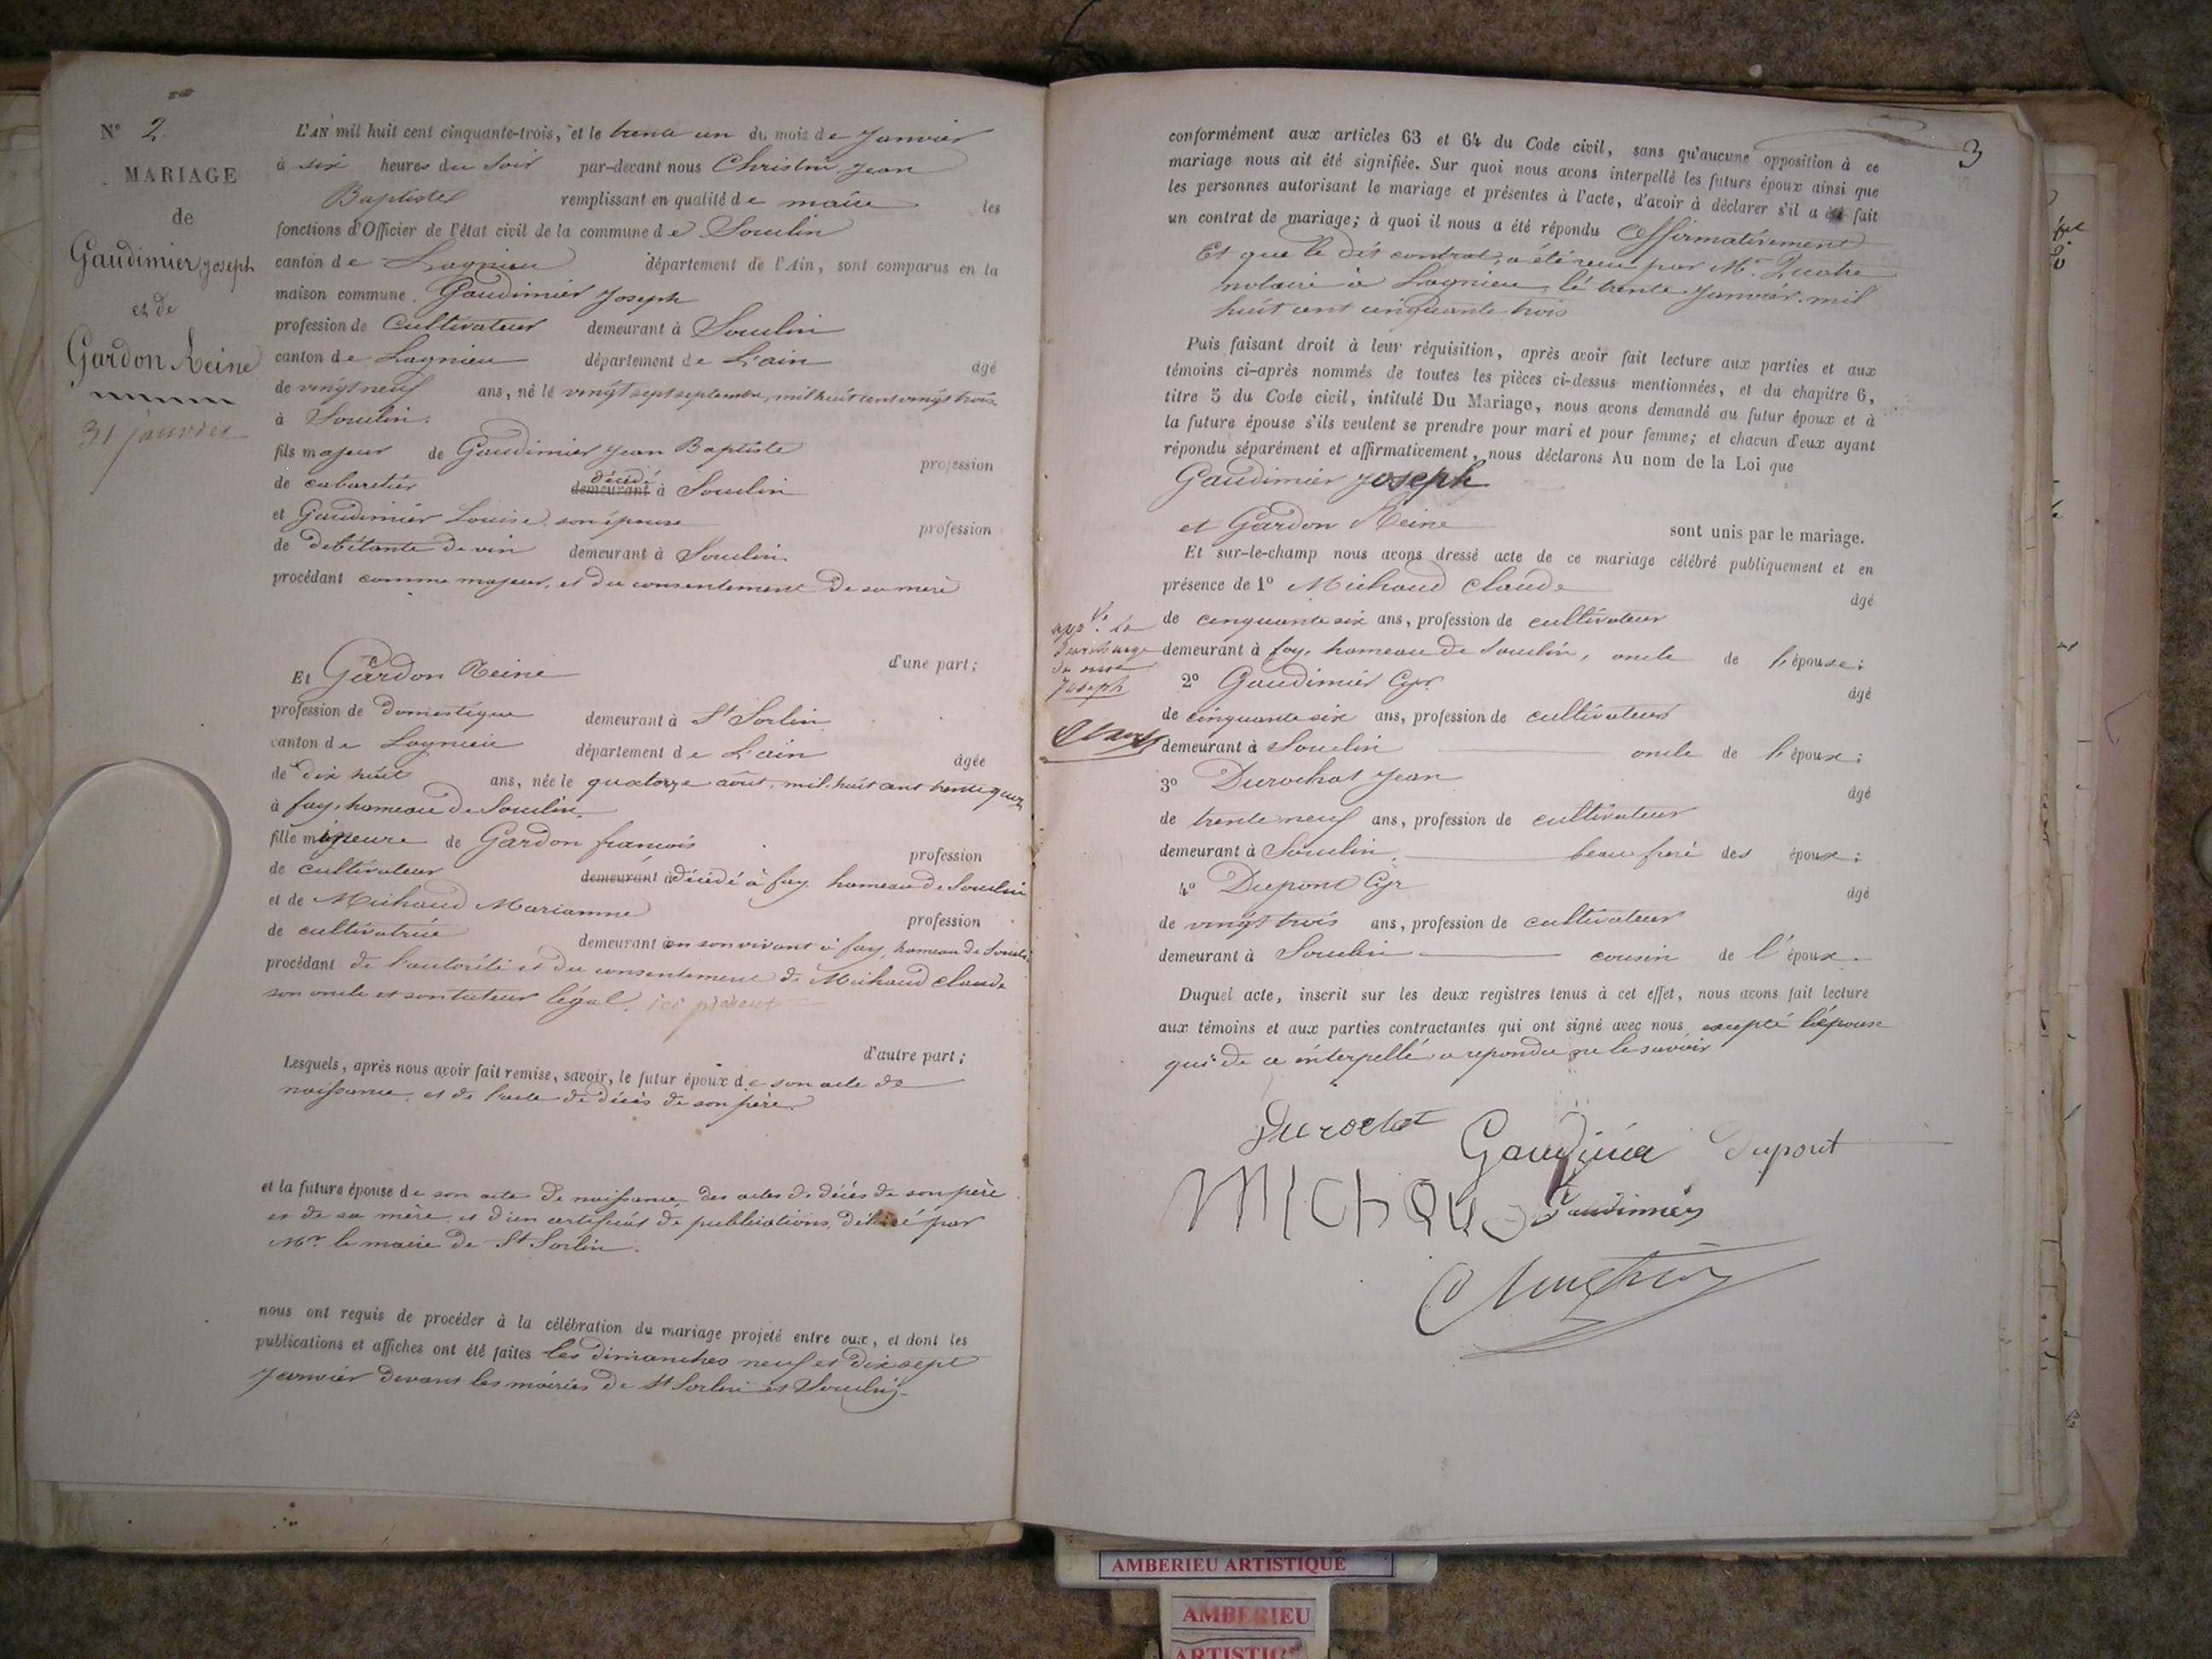 Nº 2
MARIAGE
de
Gaudimier Joseph
et de
Gardon Reine
31 janvier
L'AN mil huit cent cinquante-trois, et le trente un du mois de Janvier
à six heures du Soir par-devant nous Christin Jean
Baptiste remplissant en qualité de maire les
fonctions d'Officier de l'état civil de la commune de Souclin
canton de Lagnieu département de l'Ain, sont comparus en la
maison commune, Gaudimier Joseph
profession de Cultivateur demeurant à Souclin
canton de Lagnieu département de L'ain âgé
de vingt neuf ans, né le vingt sept septembre, mil huit cent vingt trois
à Souclin.
fils majeur de Gaudimier Jean Baptiste profession
de cabaretier demeurant décédé à Souclin
et Gaudimier Louise, son épouse profession
de débitante de vin demeurant à Souclin
procédant comme majeur, et du consentement de sa mère
d'une part;
Et Gardon Reine
profession de domestique demeurant à St Sorlin
canton de Lagnieu département de L'ain âgée
de dix huit ans, née le quatorze août, mil huit cent trente quatre
à fay, hameau de Souclin.
fille mineure de Gardon francois profession
de cultivateur demeurant à décédé à fay hameau de Souclin
et de Michaud Marianne profession
de cultivatrice demeurant en son vivant à fay, hameau de Souclin
procédant de l'autorité et du consentement de Michaud Claude
son oncle et son tuteur légal, ici présent
d'autre part;
Lesquels, après nous avoir fait remise, savoir, le futur époux de son acte de
naissance, et de l'acte de décès de son père.
et la future épouse de son acte de naissance des actes de décès de son père
et de sa mère, et d'un certificat de publications, délivré par
Mr le maire de St Sorlin.
nous ont requis de procéder à la célébration du mariage projeté entre eux, et dont les
publications et affiches ont été faites les dimanches neuf et dix sept
Janvier devant les mairies de St Sorlin et Souclin
3
conformément aux articles 63 et 64 du Code civil, sans qu'aucune opposition à ce
mariage nous ait été signifiée. Sur quoi nous avons interpellé les futurs époux ainsi que
les personnes autorisant le mariage et présentes à l'acte, d'avoir à déclarer s'il a été fait
un contrat de mariage; à quoi il nous a été répondu Affirmativement
Et que le dit contrat, a été reçu par Mr. Quatre
notaire à Lagnieu, le trente Janvier mil
huit cent cinquante trois
Puis faisant droit à leur réquisition, après avoir fait lecture aux parties et aux
témoins ci-après nommés de toutes les pièces ci-dessus mentionnées, et du chapitre 6,
titre 5 du Code civil, intitulé Du Mariage, nous avons demandé au futur époux et à
la future épouse s'ils veulent se prendre pour mari et pour femme; et chacun d'eux ayant
répondu séparément et affirmativement, nous déclarons Au nom de la Loi que
Gaudimier Joseph
et Gardon Reine sont unis par le mariage.
Et sur-le-champ nous avons dressé acte de ce mariage célébré publiquement et en
présence de 1º Michaud Claude âgé
de cinquante six ans, profession de cultivateur
demeurant à fay, hameau de Souclin, oncle de l'épouse;
2º Gaudimier Cyr âgé
de cinquante six ans, profession de cultivateur
demeurant à Souclin oncle de l'époux;
3º Durochat Jean âgé
de trente neuf ans, profession de cultivateur
demeurant à Souclin beau frere des époux;
4º Dupont Cyr âgé
de vingt trois ans, profession de cultivateur
demeurant à Souclin cousin de l'époux
appvé la
surcharge
du mot
Joseph
Duquel acte, inscrit sur les deux registres tenus à cet effet, nous avons fait lecture
aux témoins et aux parties contractantes qui ont signé avec nous, excepté l'épouse
qui de ce interpellé a repondu ne le savoir
Durochat Gaudimier Dupont
MICHAUD Gaudimier
Christin
AMBERIEU ARTISTIQUE
AMBERIEU
ARTISTIQ